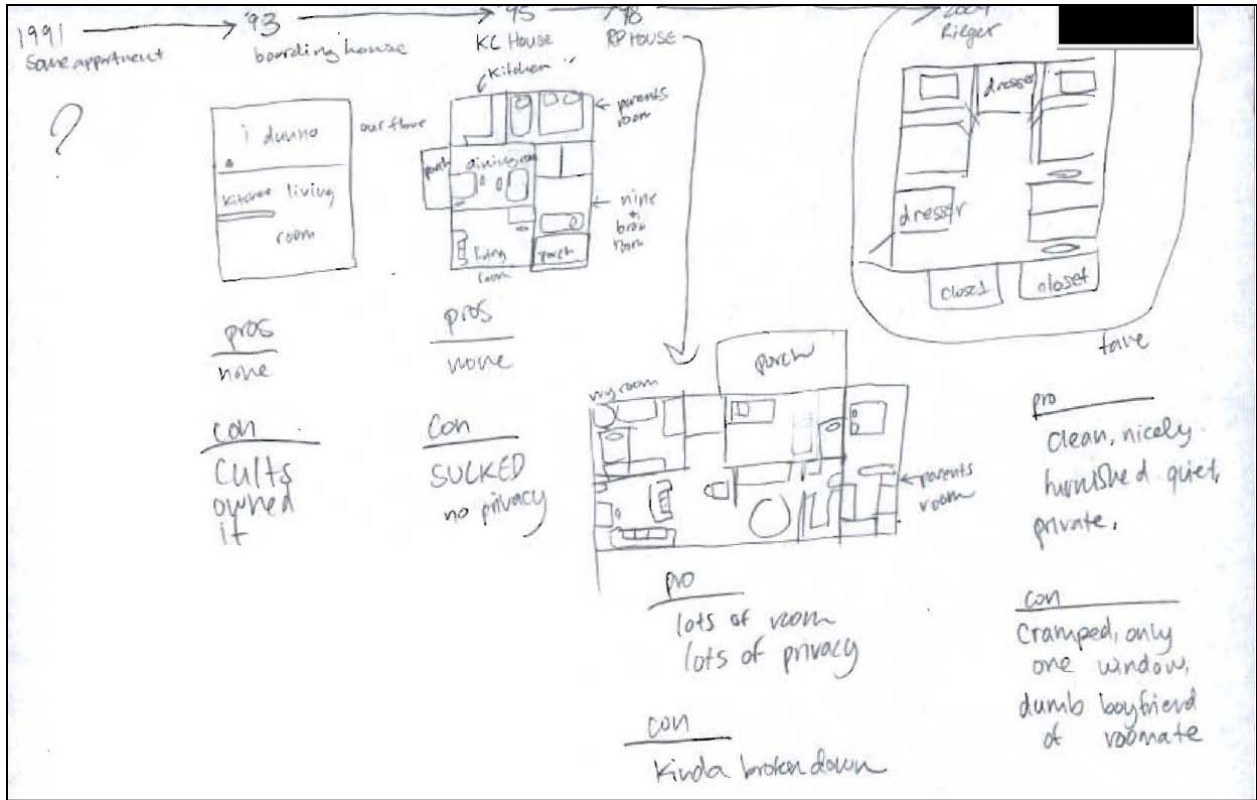 1991
Some appartment
?
'93
boarding house
i dunno
our floor
kitchen living
room
pros
none
con
Cults
owned
it
'95
KC House
kitchen
parents
room
porch
dining room
nine
room
living
room
porch
pros
none
Con
SUCKED
no privacy
'98
RP HOUSE
porch
my room
parents
room
pro
lots of room
lots of privacy
con
kinda broken down
2004
Rieger
dresser
dresser
closet
closet
fave
pro
Clean, nicely
furnished quiet,
private,
con
Cramped, only
one window,
dumb boyfriend
of roomate